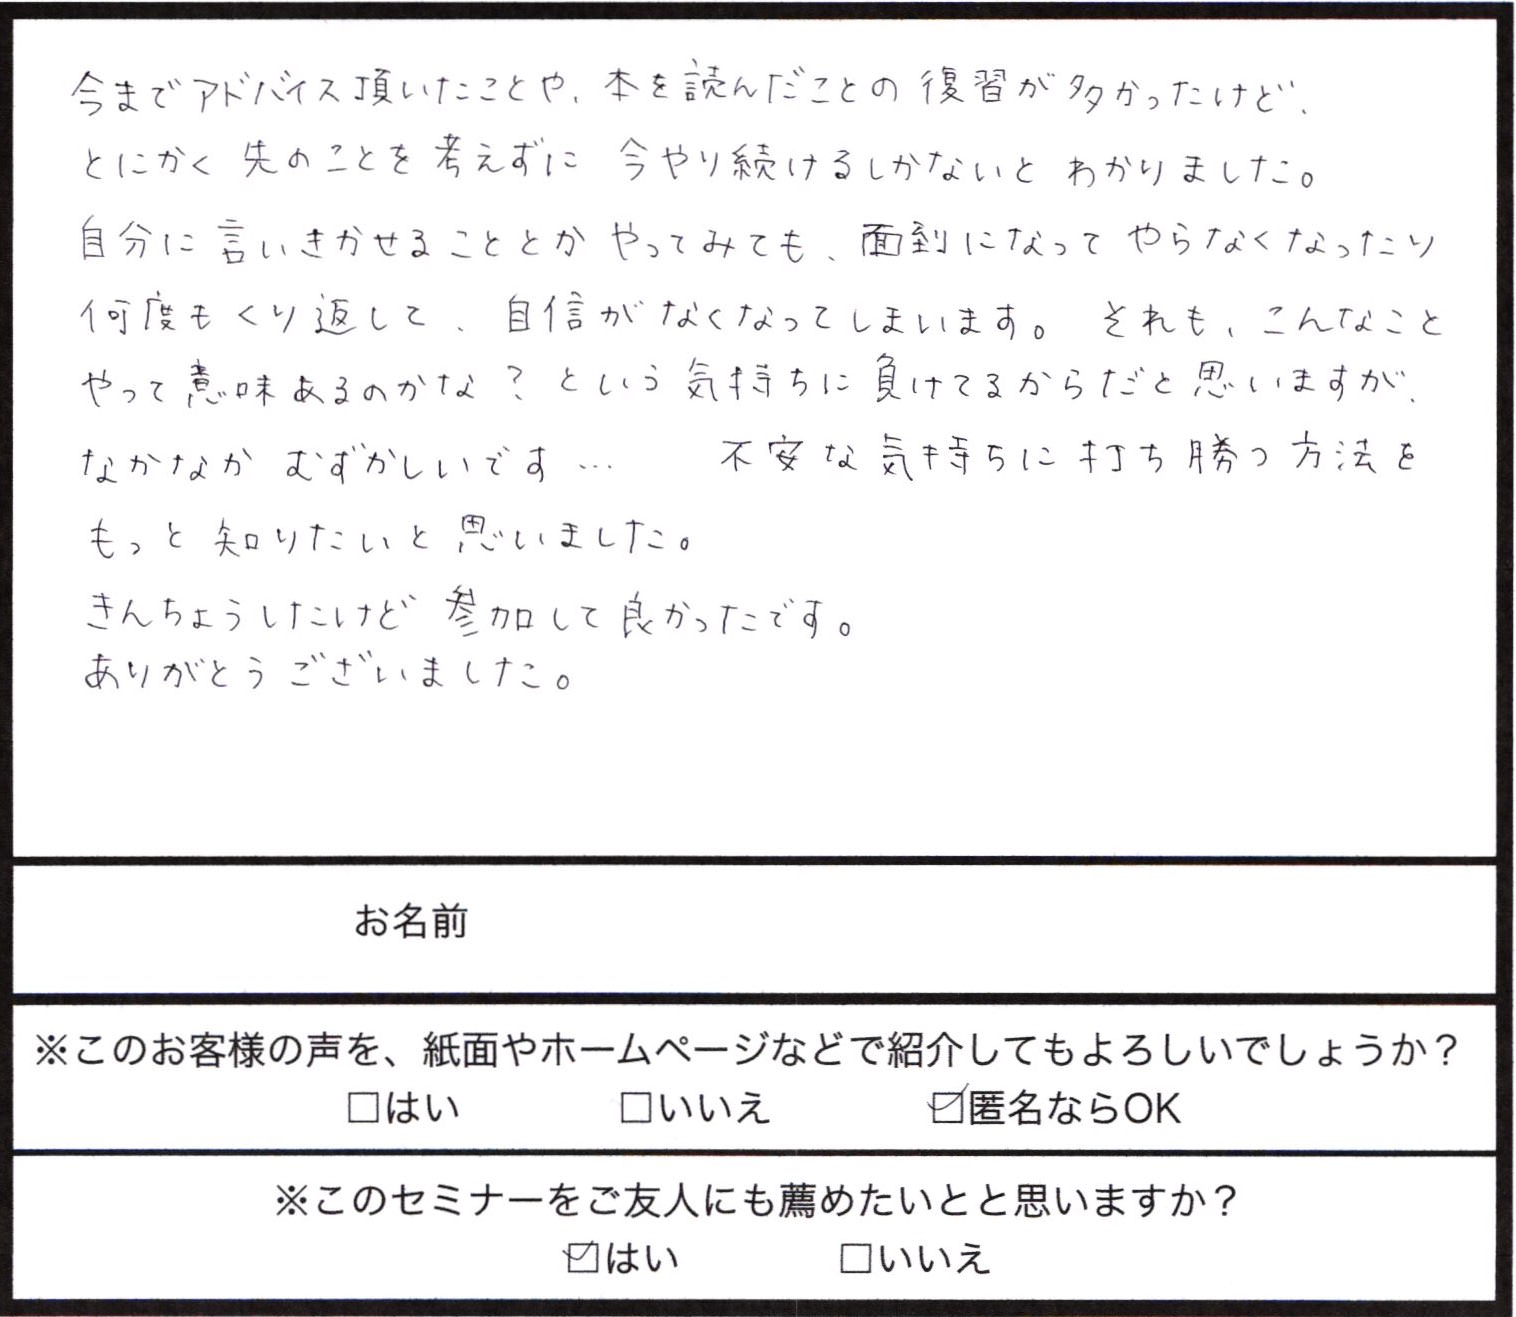 今までアドバイス頂いたことや、本を読んだことの復習が多かったけど、
とにかく先のことを考えずに 今やり続けるしかないと わかりました。
自分に言いきかせることとか やってみても、面到になって やらなくなったり
何度もくり返して、自信がなくなってしまいます。 それも、こんなこと
やって意味あるのかな？という気持ちに負けてるからだと思いますが、
なかなか むずかしいです… 不安な気持ちに打ち勝つ方法を
もっと知りたいと思いました。
きんちょうしたけど 参加して良かったです。
ありがとう ございました。
お名前
※このお客様の声を、紙面やホームページなどで紹介してもよろしいでしょうか？
□はい □いいえ ☑匿名ならOK
※このセミナーをご友人にも薦めたいとと思いますか？
☑はい □いいえ